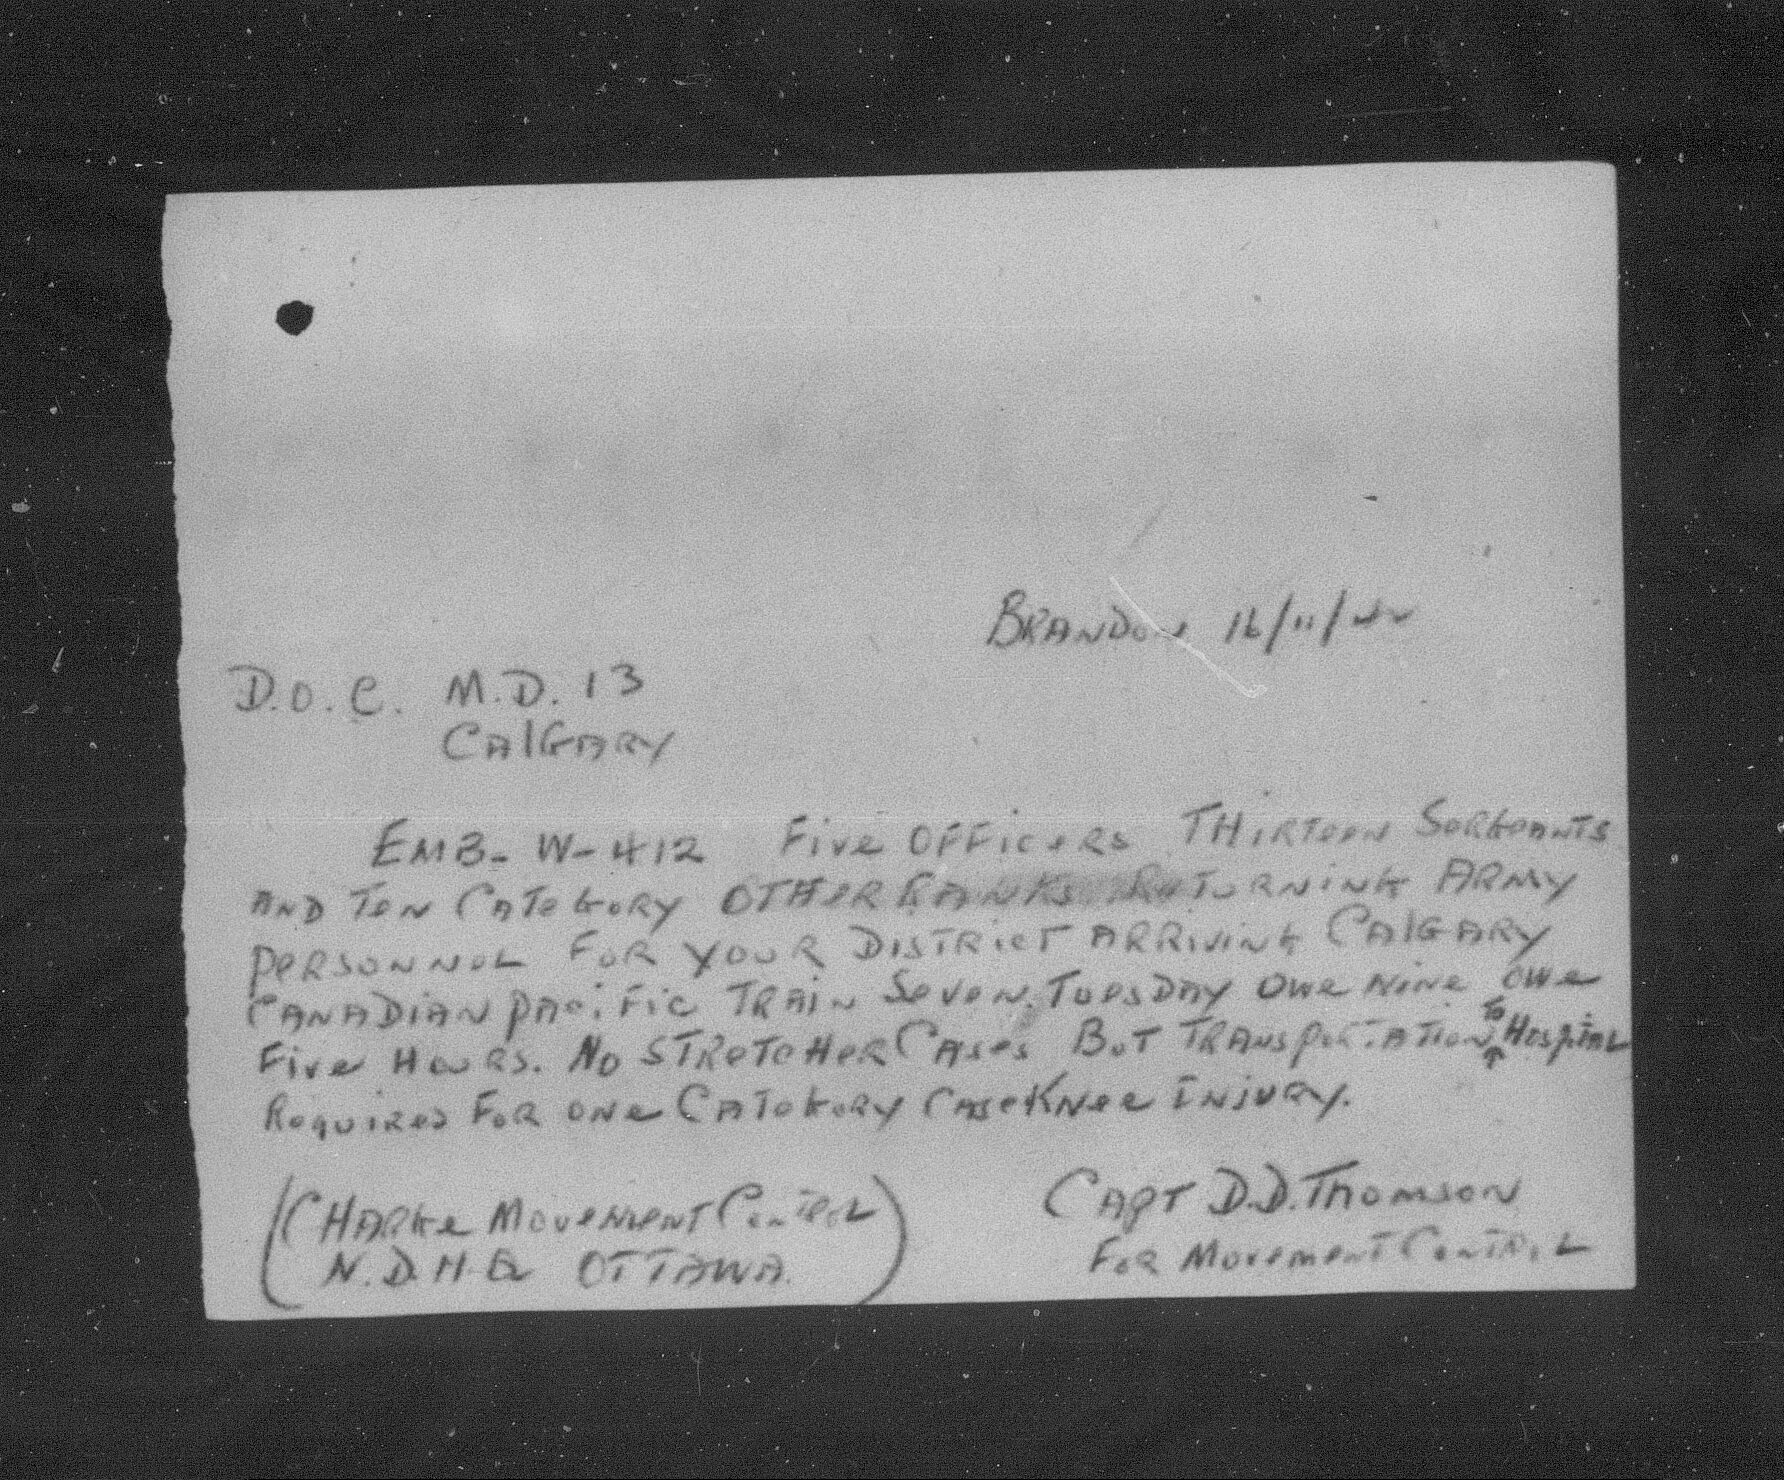 BRANDON 16/11/42
D.O.C. M.D. 13
CALGARY
EMB- W-412 FIVE OFFICERS THIRTEEN SERGEANTS
AND TEN CATEGORY OTHER RANKS RETURNING ARMY
PERSONNEL FOR YOUR DISTRICT ARRIVING CALGARY
CANADIAN PACIFIC TRAIN SEVEN TUESDAY OWE NINE OWE
FIVE HOURS. NO STRETCHER CASES BUT TRANSPORTATION TO HOSPITAL
REQUIRED FOR ONE CATEGORY CASE KNEE INJURY.
(CHARGE MOVEMENT CONTROL
N.D.H.Q OTTAWA.)
CAPT D.D. THOMSON
FOR MOVEMENT CONTROL